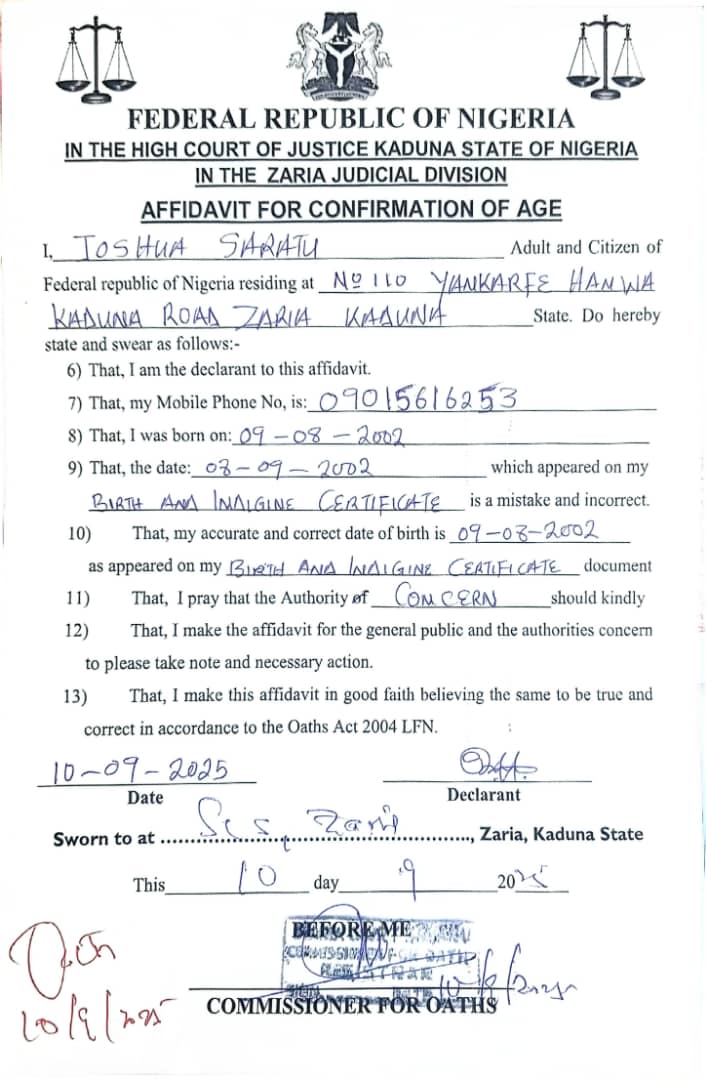 FEDERAL REPUBLIC OF NIGERIA
IN THE HIGH COURT OF JUSTICE KADUNA STATE OF NIGERIA
IN THE ZARIA JUDICIAL DIVISION
AFFIDAVIT FOR CONFIRMATION OF AGE
I, JOSHUA SARATU Adult and Citizen of
Federal republic of Nigeria residing at No 110 YANKARFE HANWA
KADUNA ROAD ZARIA KADUNA State. Do hereby
state and swear as follows:-
6) That, I am the declarant to this affidavit.
7) That, my Mobile Phone No, is: 09015616253
8) That, I was born on: 09-08-2002
9) That, the date: 08-09-2002 which appeared on my
BIRTH AND INDIGINE CERTIFICATE is a mistake and incorrect.
10) That, my accurate and correct date of birth is 09-08-2002
as appeared on my BIRTH AND INDIGINE CERTIFICATE document
11) That, I pray that the Authority of CONCERN should kindly
12) That, I make the affidavit for the general public and the authorities concern
to please take note and necessary action.
13) That, I make this affidavit in good faith believing the same to be true and
correct in accordance to the Oaths Act 2004 LFN.
10-09-2025
Date Declarant
Sworn to at Zaria, Zaria, Kaduna State
This 10 day 9 2025
BEFORE ME
COMMISSIONER FOR OATHS
10/9/2025